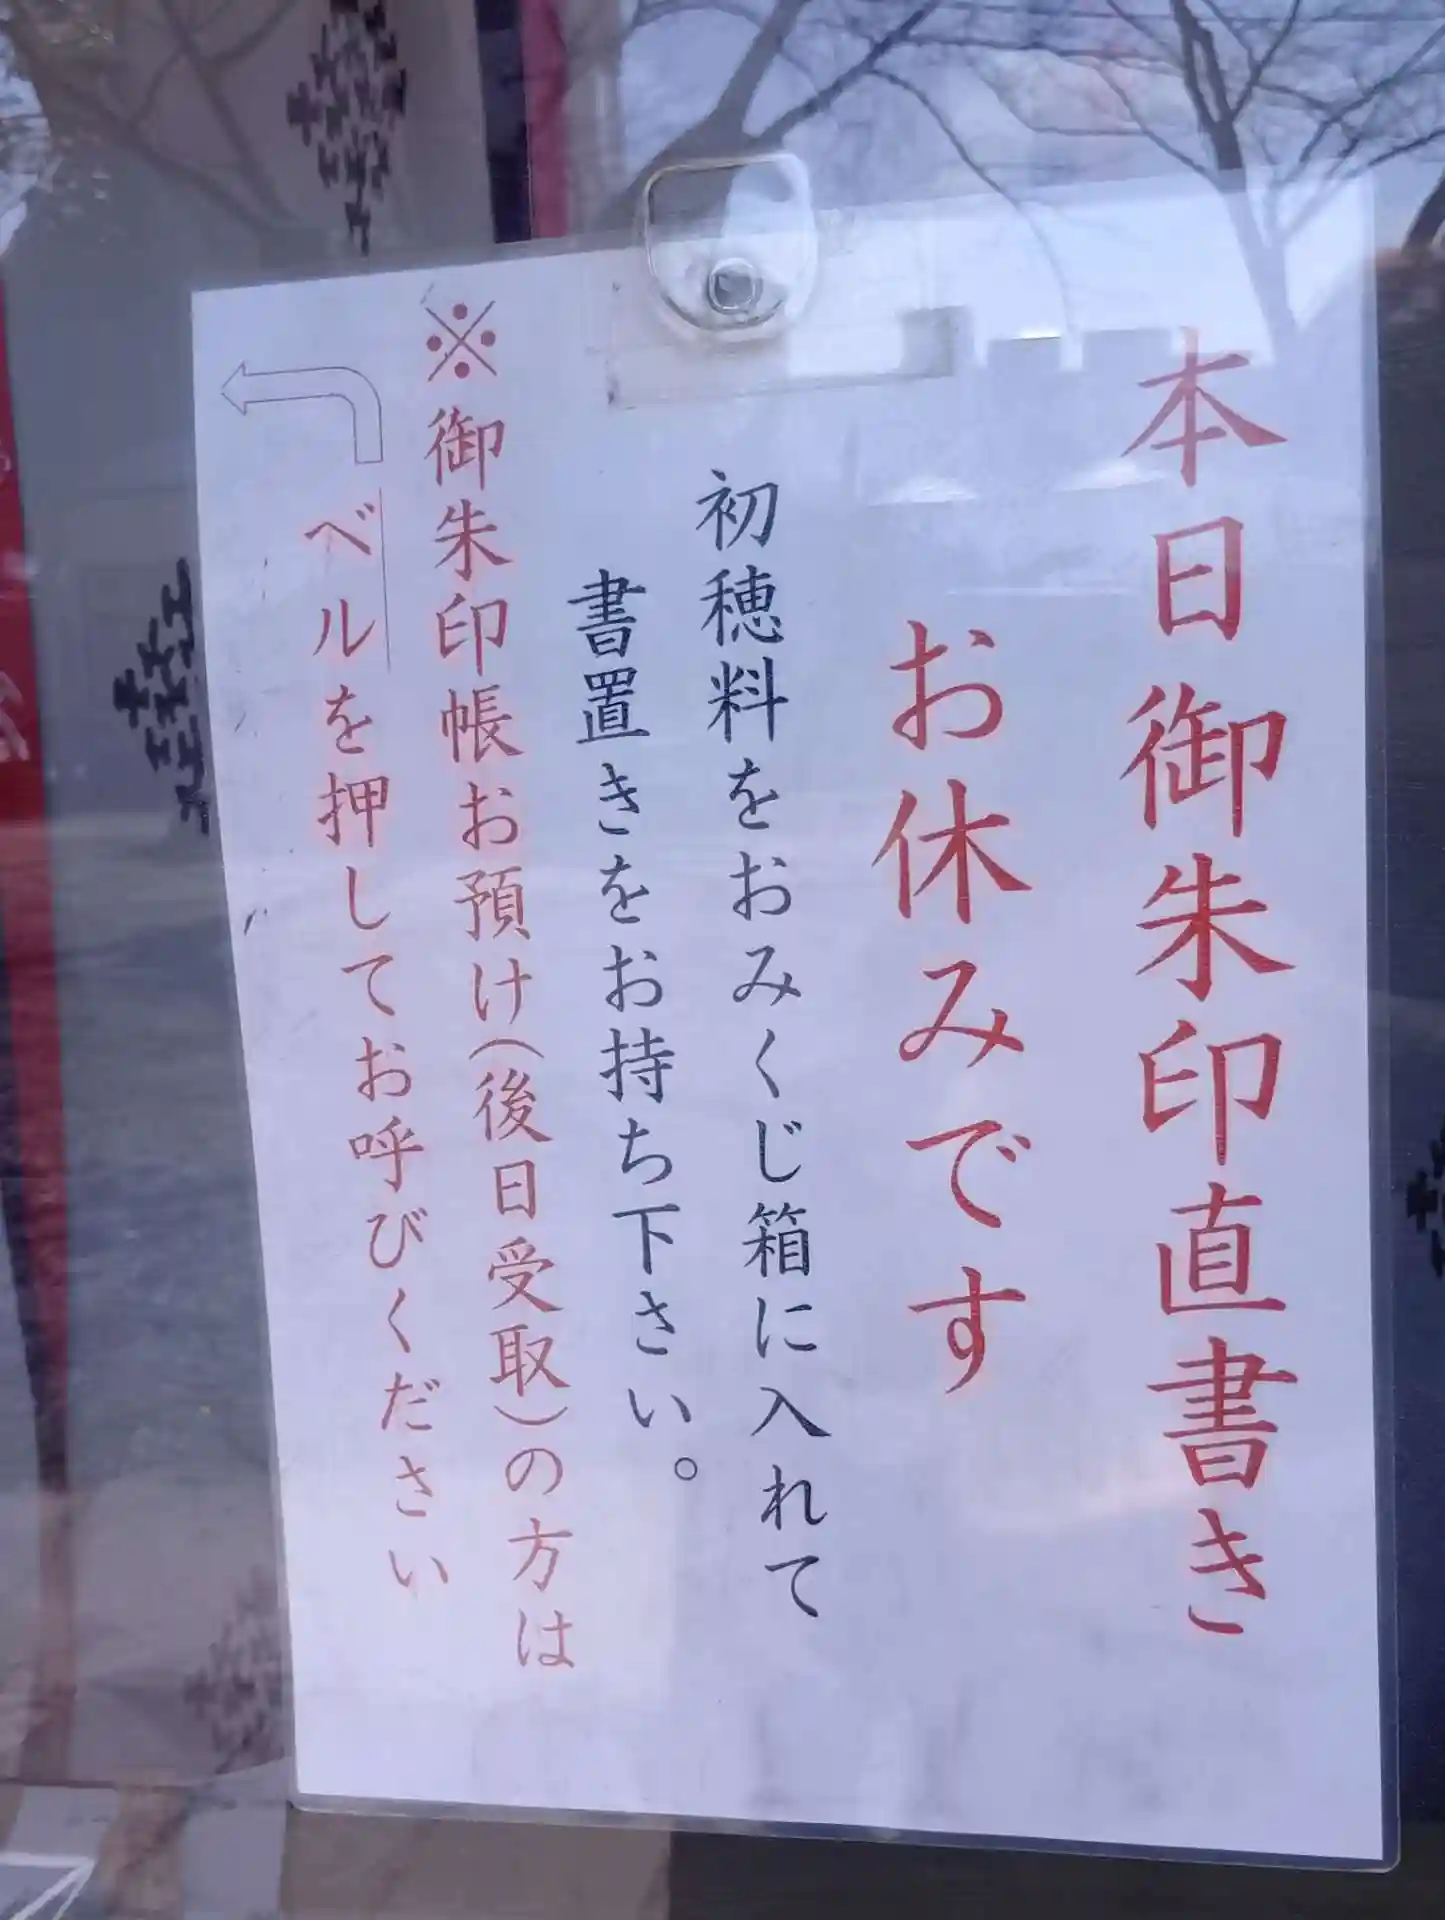 本日御朱印直書き
お休みです
初穂料をおみくじ箱に入れて
書置きをお持ち下さい。
※御朱印帳お預け(後日受取)の方は
ベルを押してお呼びください